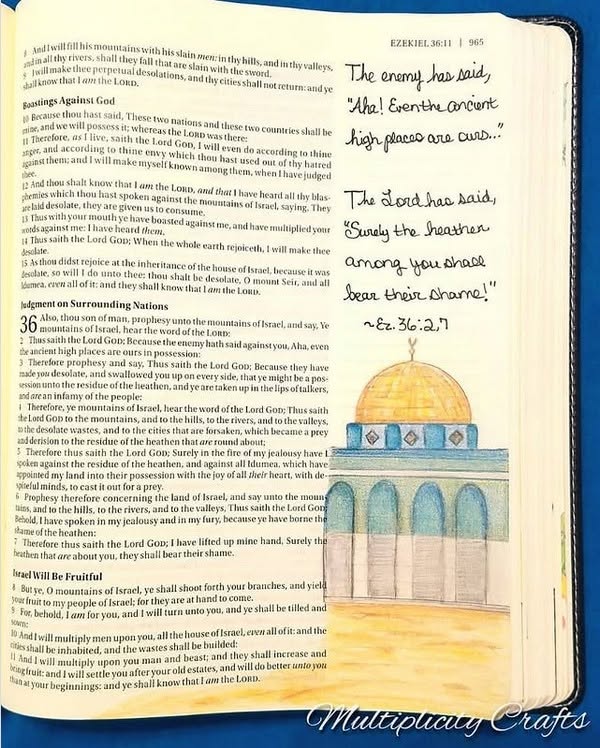 EZEKIEL 36:11 | 965
8 And I will fill his mountains with his slain men: in thy hills, and in thy valleys,
and in all thy rivers, shall they fall that are slain with the sword.
9 I will make thee perpetual desolations, and thy cities shall not return: and ye
shall know that I am the LORD.
Boastings Against God
10 Because thou hast said, These two nations and these two countries shall be
mine, and we will possess it; whereas the LORD was there:
11 Therefore, as I live, saith the Lord GOD, I will even do according to thine
anger, and according to thine envy which thou hast used out of thy hatred
against them; and I will make myself known among them, when I have judged
thee.
12 And thou shalt know that I am the LORD, and that I have heard all thy blas-
phemies which thou hast spoken against the mountains of Israel, saying, They
are laid desolate, they are given us to consume.
13 Thus with your mouth ye have boasted against me, and have multiplied your
words against me: I have heard them.
14 Thus saith the Lord GOD; When the whole earth rejoiceth, I will make thee
desolate.
15 As thou didst rejoice at the inheritance of the house of Israel, because it was
desolate, so will I do unto thee: thou shalt be desolate, O mount Seir, and all
Idumea, even all of it: and they shall know that I am the LORD.
Judgment on Surrounding Nations
36 Also, thou son of man, prophesy unto the mountains of Israel, and say, Ye
mountains of Israel, hear the word of the LORD:
2 Thus saith the Lord GOD; Because the enemy hath said against you, Aha, even
the ancient high places are ours in possession:
3 Therefore prophesy and say, Thus saith the Lord GOD; Because they have
made you desolate, and swallowed you up on every side, that ye might be a pos-
session unto the residue of the heathen, and ye are taken up in the lips of talkers,
and are an infamy of the people:
4 Therefore, ye mountains of Israel, hear the word of the Lord GOD; Thus saith
the Lord GOD to the mountains, and to the hills, to the rivers, and to the valleys,
to the desolate wastes, and to the cities that are forsaken, which became a prey
and derision to the residue of the heathen that are round about;
5 Therefore thus saith the Lord GOD; Surely in the fire of my jealousy have I
spoken against the residue of the heathen, and against all Idumea, which have
appointed my land into their possession with the joy of all their heart, with de-
spiteful minds, to cast it out for a prey.
6 Prophesy therefore concerning the land of Israel, and say unto the moun-
tains, and to the hills, to the rivers, and to the valleys, Thus saith the Lord GOD;
Behold, I have spoken in my jealousy and in my fury, because ye have borne the
shame of the heathen:
7 Therefore thus saith the Lord GOD; I have lifted up mine hand, Surely the
heathen that are about you, they shall bear their shame.
Israel Will Be Fruitful
8 But ye, O mountains of Israel, ye shall shoot forth your branches, and yield
your fruit to my people of Israel; for they are at hand to come.
9 For, behold, I am for you, and I will turn unto you, and ye shall be tilled and
sown:
10 And I will multiply men upon you, all the house of Israel, even all of it: and the
cities shall be inhabited, and the wastes shall be builded:
11 And I will multiply upon you man and beast; and they shall increase and
bring fruit: and I will settle you after your old estates, and will do better unto you
than at your beginnings: and ye shall know that I am the LORD.
The enemy has said,
"Aha! Even the ancient
high places are ours..."
The Lord has said,
"Surely the heathen
among you shall
bear their shame!"
~Ez. 36:2,7
Multiplicity Crafts